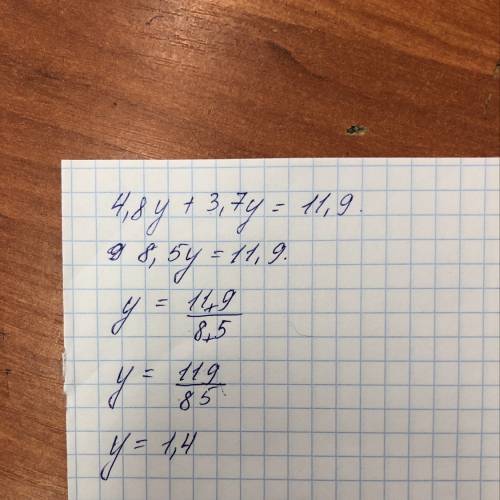 4,8y + 3,7y = 11,9.
8,5y = 11,9.
y = 11,9/8,5
y = 119/85
y = 1,4